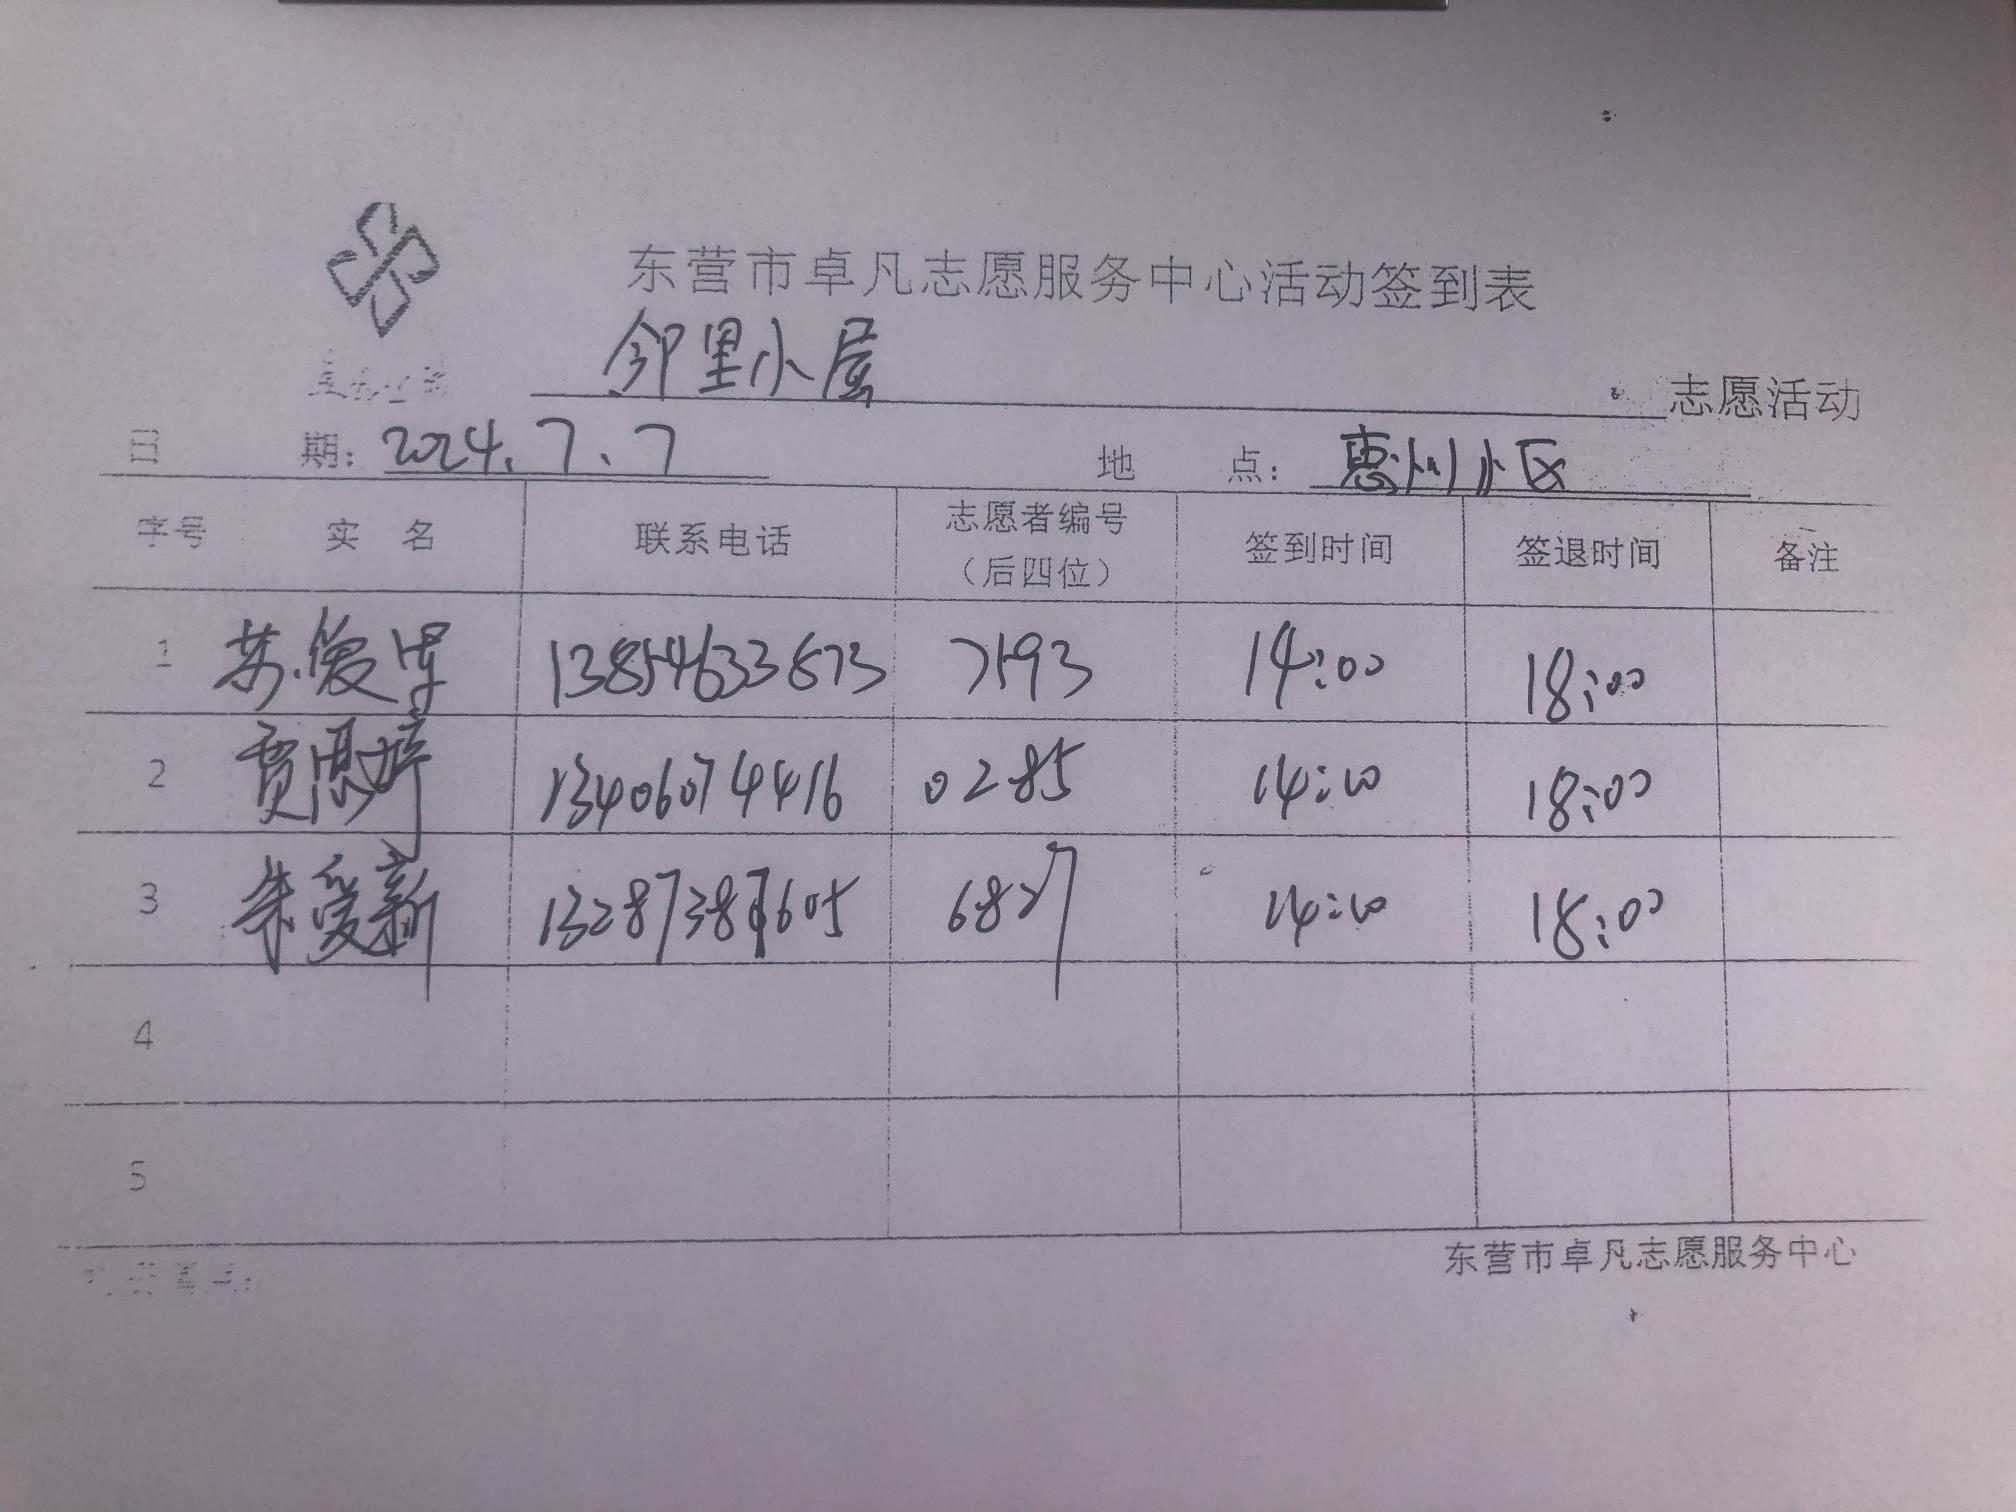 东营市卓凡志愿服务中心活动签到表
邻里小屋 志愿活动
日期：2024.7.7 地点：惠州小区
序号 实名 联系电话 志愿者编号（后四位） 签到时间 签退时间 备注
1 苏爱 13854633673 7193 14:00 18:00
2 贾思婷 13406074416 0285 14:00 18:00
3 朱爱新 13287387605 6827 14:00 18:00
4
5
东营市卓凡志愿服务中心